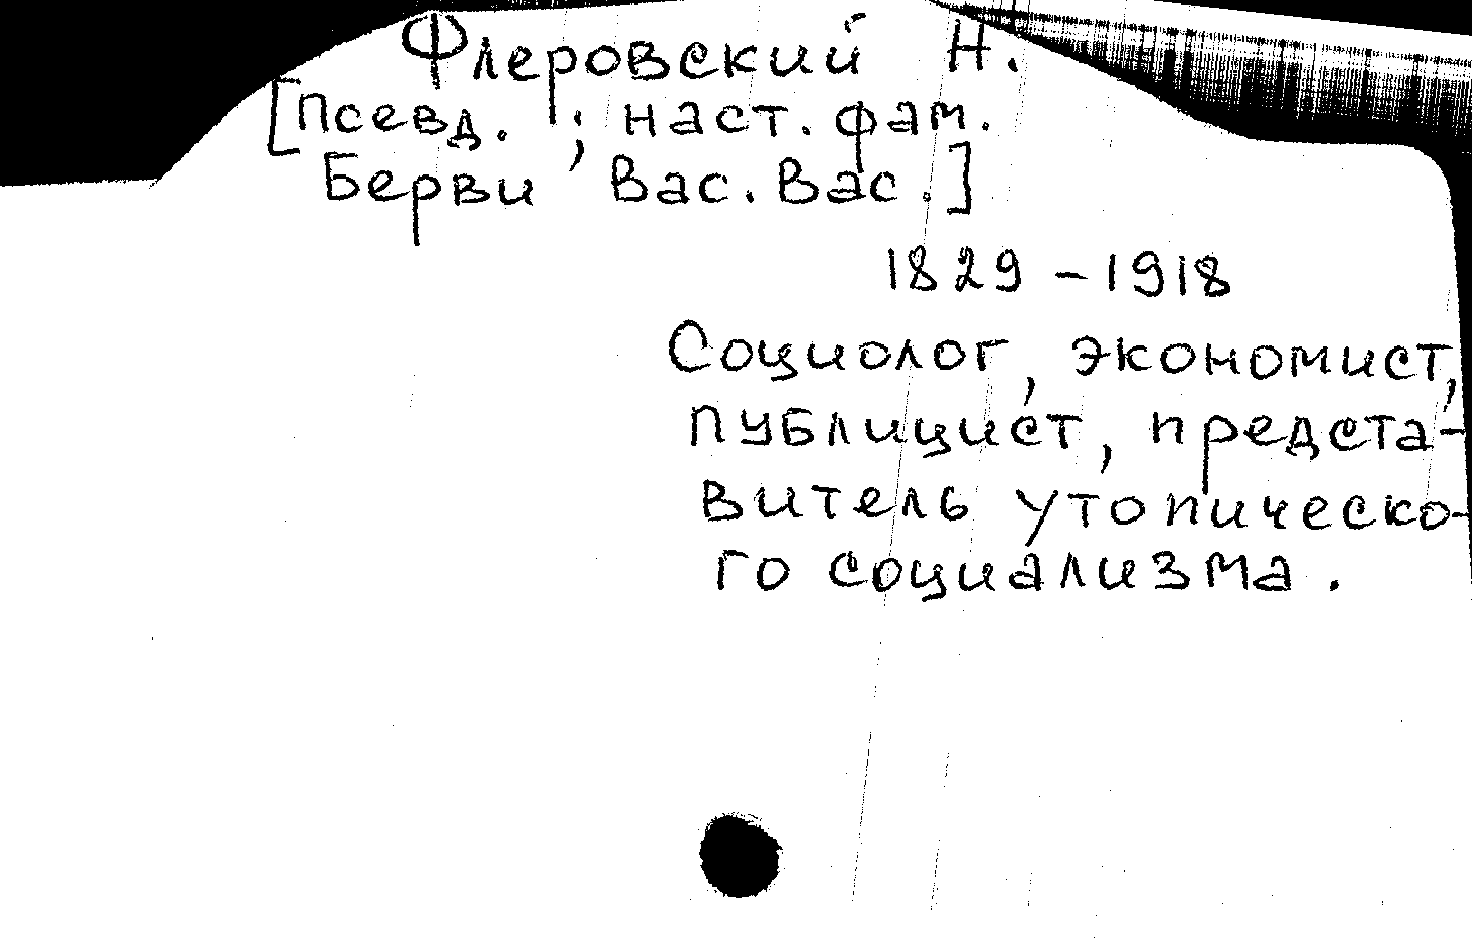 Флеровский Н.
[Псевд.; наст. фам.
Берви Вас. Вас.]
1829 – 1918
Социолог, экономист,
публицист, предста-
витель утопическо-
го социализма.